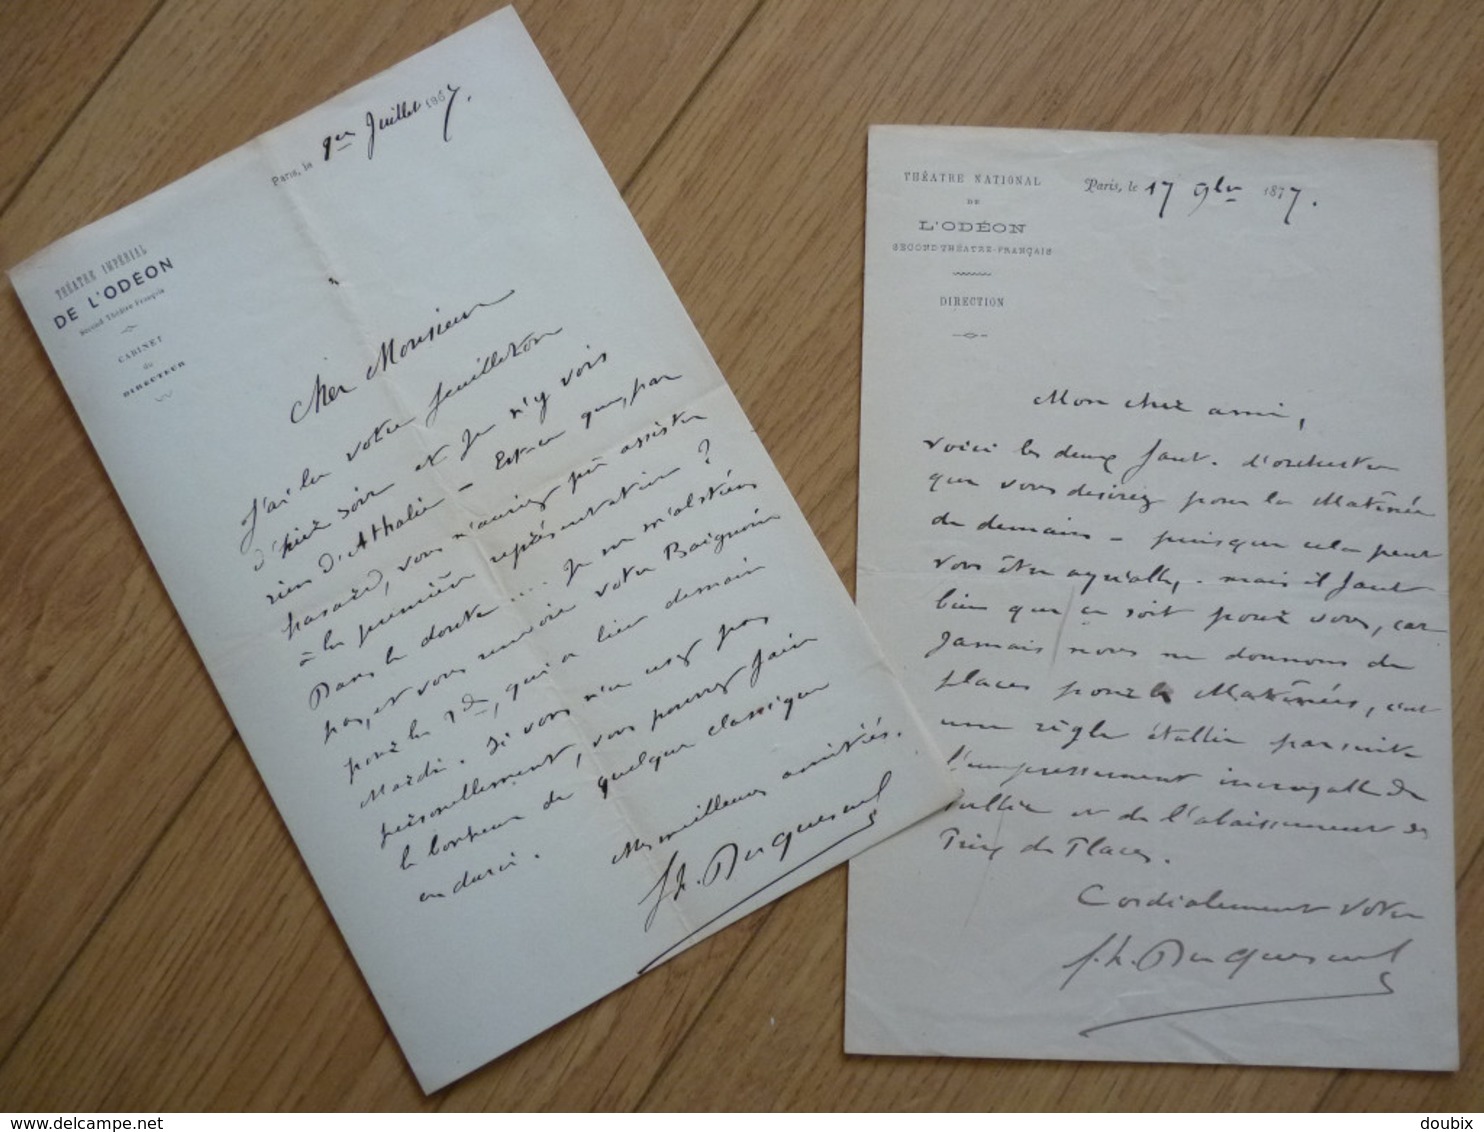 THÉATRE IMPÉRIAL
DE L'ODÉON
Second Théâtre Français
CABINET
du
DIRECTEUR
Paris, le 1er Juillet 1867.
Cher Monsieur
J'ai lu votre feuilleton
d'hier soir et je n'y vois
rien d'Athalie — Est-ce que, par
hasard, vous n'auriez pu assister
à la première représentation ?
Dans le doute ... je ne m'abstiens
pas, et vous renvoie votre Baignoire
pour la 2de, qui a lieu demain
Mardi. Si vous n'en usez pas
personellement, vous pourrez faire
le bonheur de quelque classique
endurci.
Mes meilleures amitiés.
Duquesnel
THÉATRE NATIONAL
DE
L'ODÉON
SECOND THÉATRE-FRANÇAIS
DIRECTION
Paris, le 17 9bre 1877.
Mon cher ami,
voici les deux faut. d'orchestre
que vous desirez pour la Matinée
de demain — puisque cela peut
vous être agréable, — mais il faut
bien que ce soit pour vous, car
jamais nous ne donnons de
places pour les Matinées, c'est
une règle établie par suite
l'empressement incroyable du
public et de l'abaissement des
Prix des Places.
Cordialement votre
Duquesnel
delcampe.net
doubix